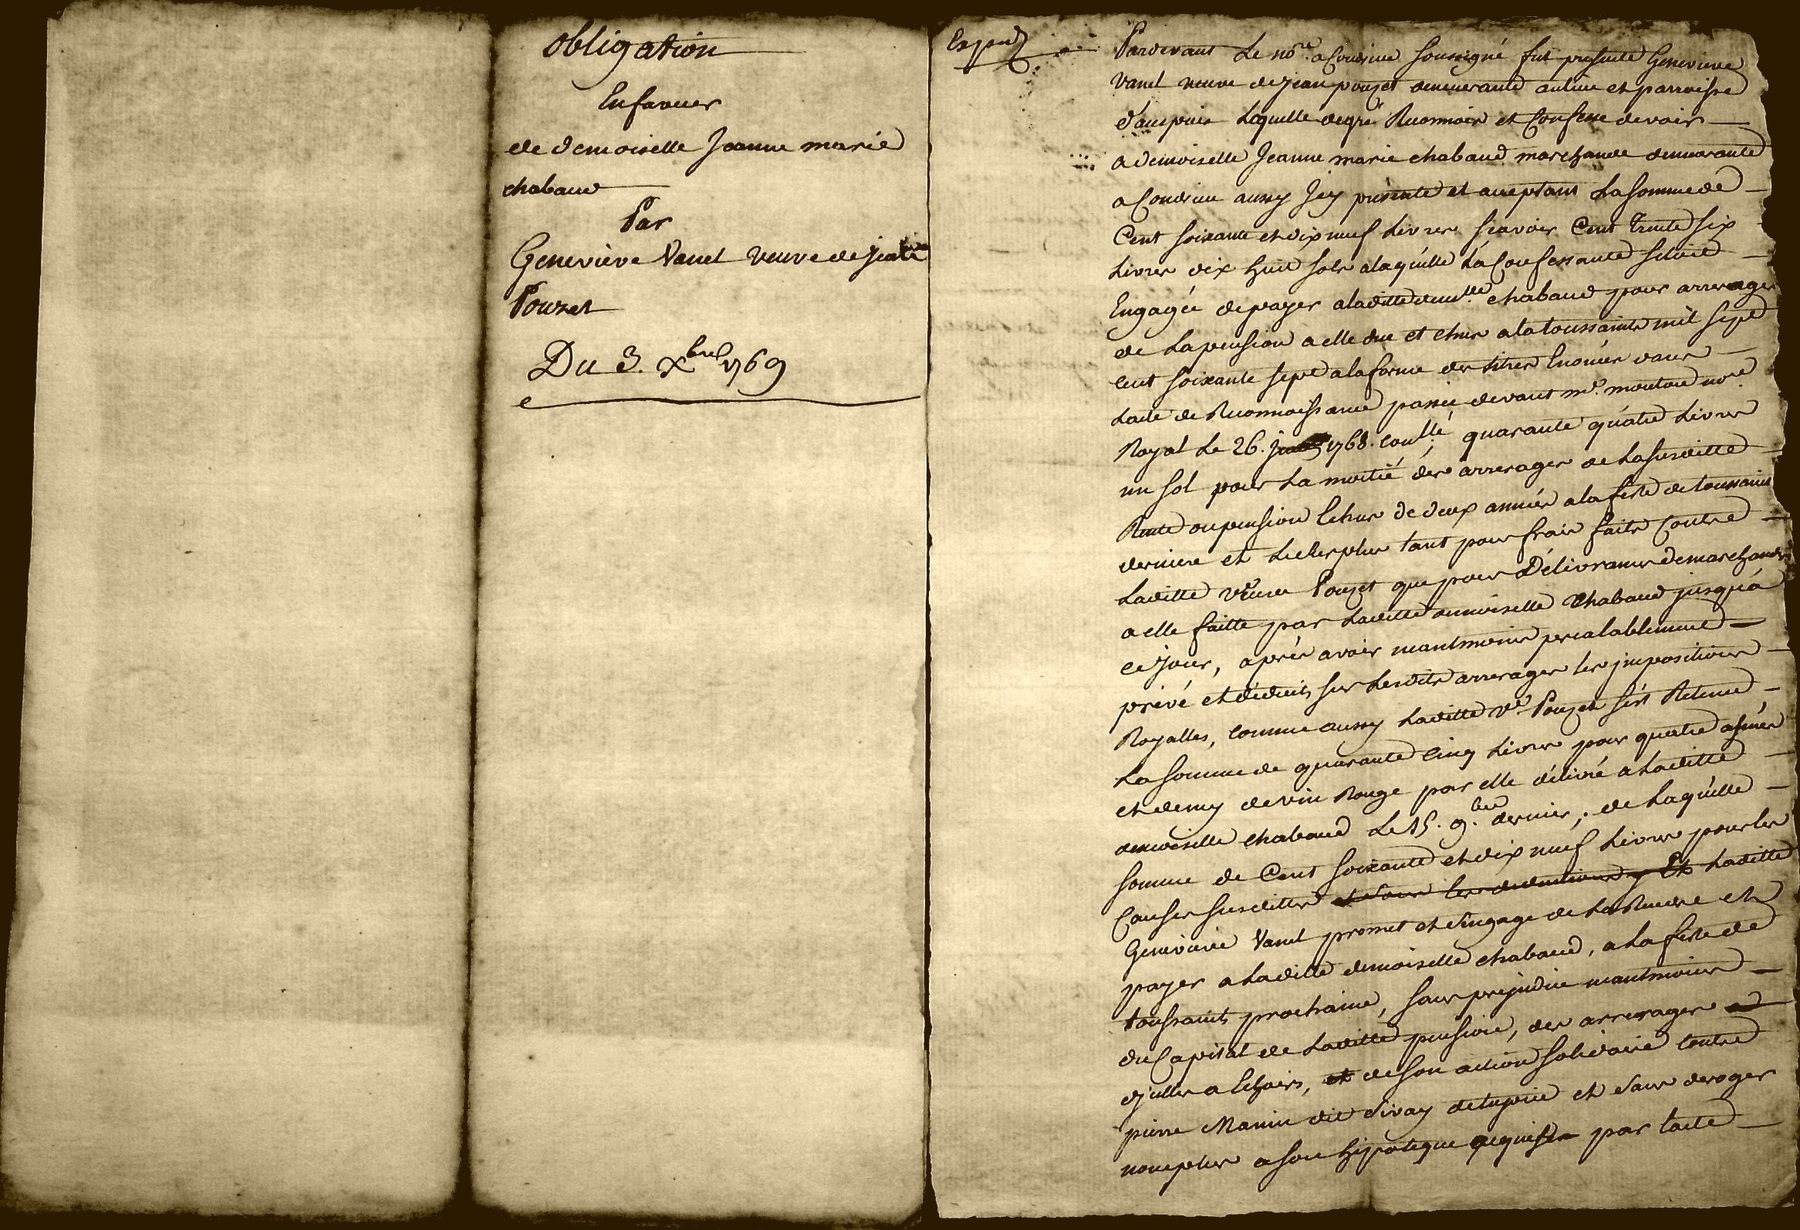 obligation
Enfaveur
de demoiselle Jeanne marie
chabaud
Par
Geneviève Vanel veuve de jean
Pouzet
Du 3. Xbre 1769
Exped
Pardevant Le nore a Condrieu soussigné fut presente Genevieve
Vanel veuve de jean pouzet demeurante au lieu et parroisse
d'ampuis Laquelle degré Reconnoir et Confesse devoir
a demoiselle Jeanne marie chabaud marchande demeurante
a Condrieu aussy Jcy presente et acceptant La somme de
Cent soixante et dix neuf Livres sçavoir Cent Trente six
Livres dix huit sols alaquelle La Confessante setoit
Engagée depayer aladitte demlle chabaud pour arrerages
de La pension a elle due et echue ala toussaints mil sept
cent soixante sept ala forme des titres Enoncés dans
Lacte de Reconnoissance passée devant me moutou nore
Royal Le 26. 1768. conllé; quarante quatre Livres
un sol pour La moitié des arrerages de La susditte
Rente ou pension Echue de deux années ala feste de toussaints
derniere et Lesurplus tant pour frais faits Contre
Laditte veuve Pouzet que pour Délivrances demarchandises
a elle faitte par Laditte demoiselle chabaud jusqu'a
ce jour, aprés avoir neantmoins prealablement
prévé et déduit sur Lesdits arrerages les jmpositions
Royalles, comme aussy Laditte ve Pouzet s'est Retenue
La somme de quarante cinq Livres pour quatre asnées
et demy de vin Rouge par elle délivré a Laditte
demoiselle chabaud Le 15. 9.bre dernier; de Laquelle
somme de Cent soixante et dix neuf Livres pour les
Causes susdittes Laditte
Genevieve Vanel promet et s'engage de La Rendre et
payer a Laditte demoiselle chabaud, a La feste de
toussaints prochaine, sans prejudice neantmoins
du Capital de Laditte pension, des arrerages
d'jcelle a Echoir, et de son action solidaire contre
pierre Manin dit sivay detupin et sans deroger
nonplus a son hipoteque acquise par lacte